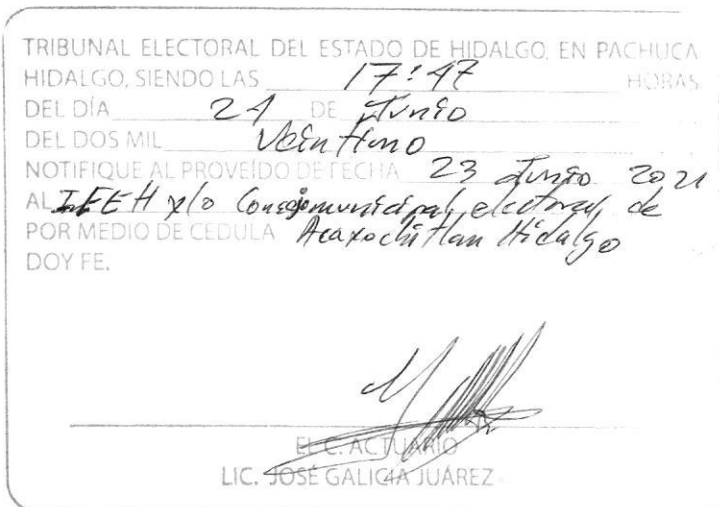 TRIBUNAL ELECTORAL DEL ESTADO DE HIDALGO, EN PACHUCA
HIDALGO, SIENDO LAS 17:47 HORAS
DEL DÍA 24 DE Junio
DEL DOS MIL Veintiuno
NOTIFIQUE AL PROVEÍDO DE FECHA 23 Junio 2021
AL IEEH y/o Consejo municipal electoral de
POR MEDIO DE CEDULA Acaxochitlan Hidalgo
DOY FE.
EL C. ACTUARIO
LIC. JOSÉ GALICIA JUÁREZ